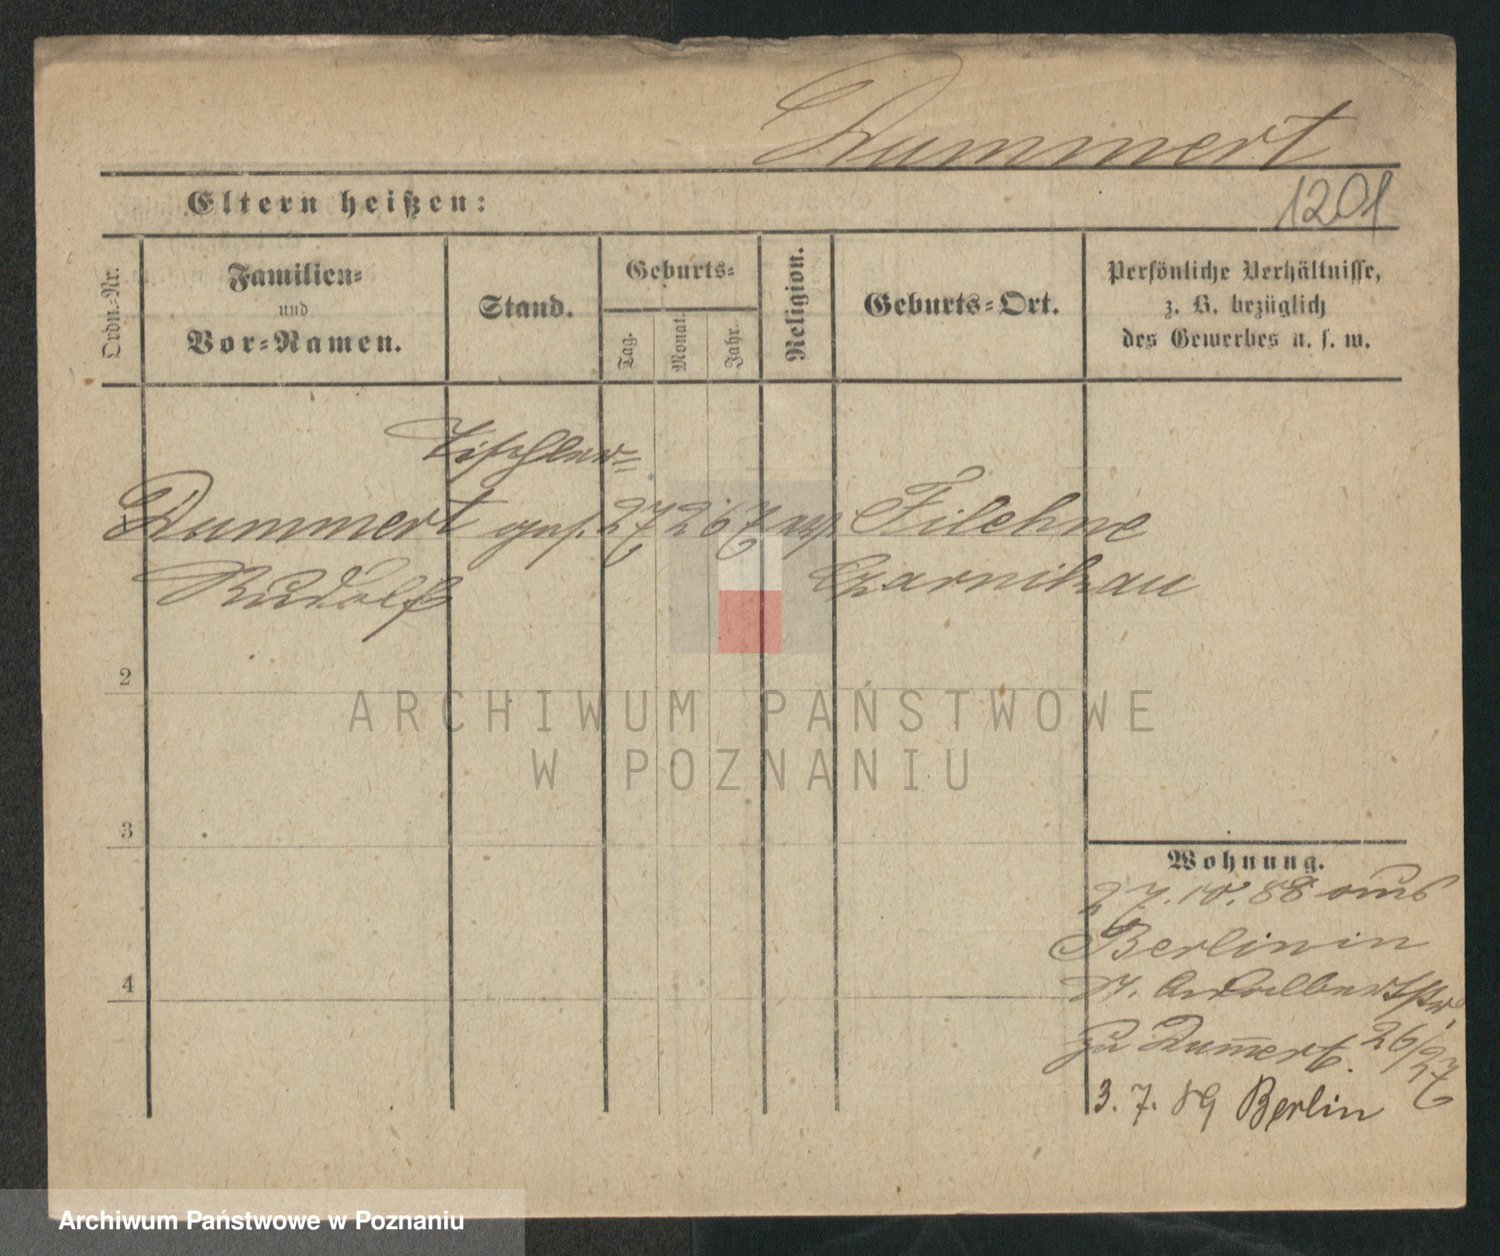 Dummert
1201
Eltern heißen:
Ordn.-Nr.
Familien-
und
Vor-Namen.
Stand.
Geburts-
Tag.
Monat.
Jahr.
Religion.
Geburts-Ort.
Persönliche Verhältnisse,
z. B. bezüglich
des Gewerbes u. s. w.
Tischler-
Dummert 27 2 67 Filehne
Rudolf Czarnikau
2
ARCHIWUM PAŃSTWOWE
W POZNANIU
3
4
Wohnung.
27. 10. 88 aus
Berlin in
Adalbertstr.
zu Dum̄ert. 26/27
3. 7. 89 Berlin
Archiwum Państwowe w Poznaniu